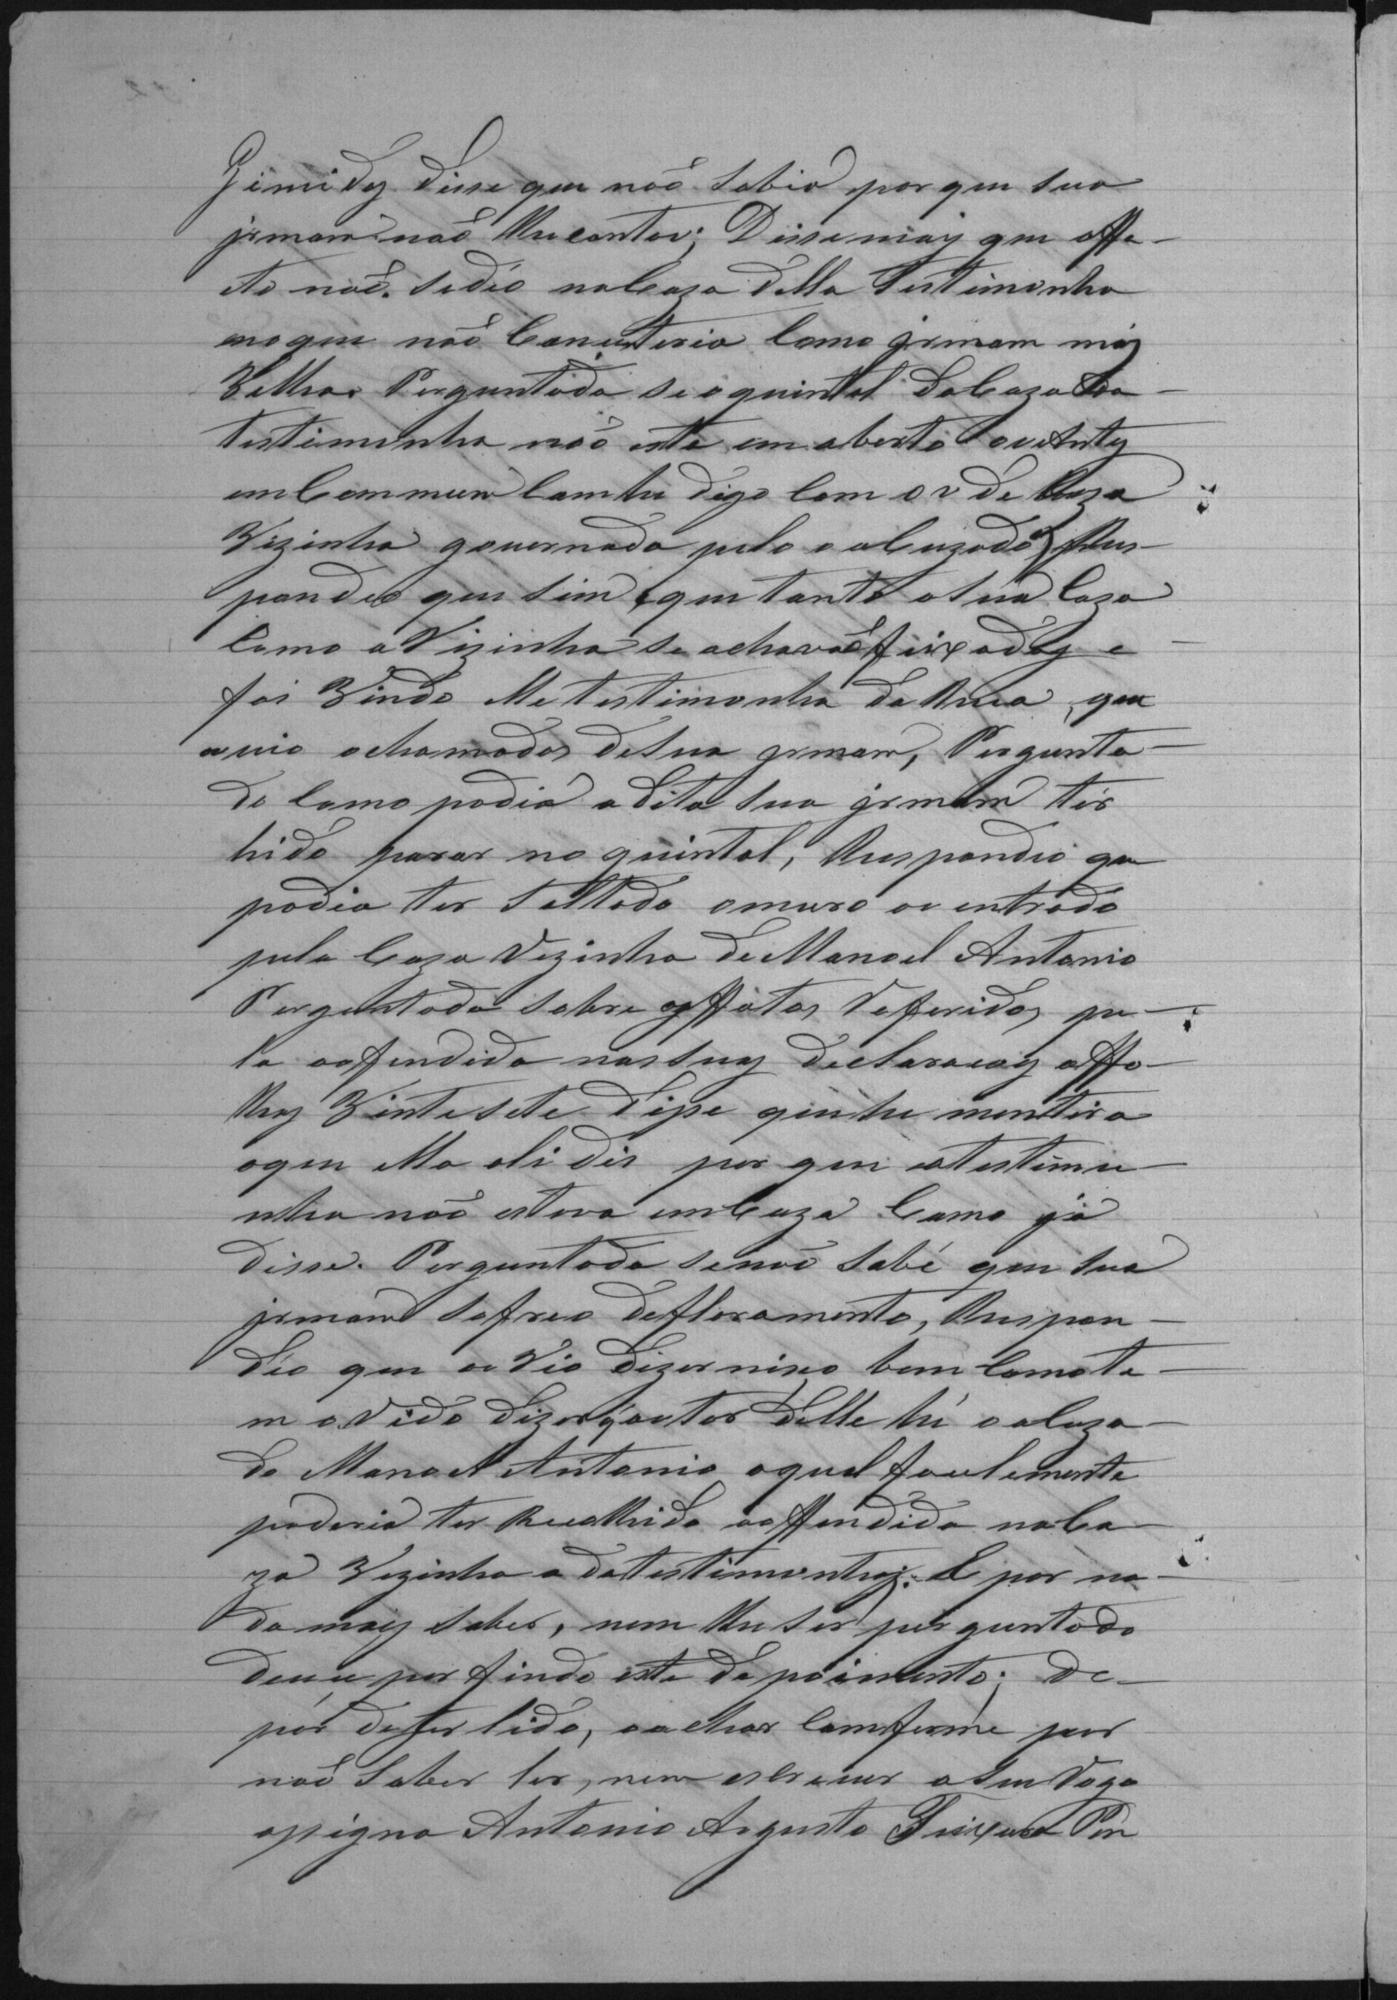 gimidos disse que não sabia por que sua
jrmam não lhe contou; Disse mais que o fa-
cto não se deo na Caza della testimonha
no que não Consuteria Como jrmam mais
Velha. Perguntada se o quintal da Caza da
testimonha não está em aberto ou antes
em Commum Com he digo Com o v de Caza
Vizinha governada pelo o acuzado, Res-
pondeo que sim, que tanto a sua Caza
Como a Vizinha se achavão feixadas e
foi Vindo ella testimonha da Rua, que
ouvio o chamados de sua jrmam, Pergunta-
do Como podiá a dita sua jrmam ter
hido parar no quintal, Respondeo que
podia ter saltado o muro ou entrado
pela Caza Vezinha de Manoel Antonio
Perguntada sobre os factos referidos pe-
la offendida nas suas declaracois a fo-
lhas Vinte sete disse que he mentira
o que ella ali dis por que a testimu-
nha não estava em Caza Como já
disse. Perguntada se não sabe que sua
jrmam sofreo defloramento, Respon-
deo que ouvio dizer nisso bem Como te-
m ovido dizer q autor delle hé o acuza-
do Manoel Antonio o qual facilmente
poderia ter Recolhido a offendida na Ca-
za Vezinha a da testimonha. E por na-
da mais saber, nem lhe ser perguntado
deu-se por findo este depoimento; de-
pois de ser lido, o achar Comforme por
não saber ler, nem escrever a seu rogo
assigna Antonio Augusto Teixeira Por